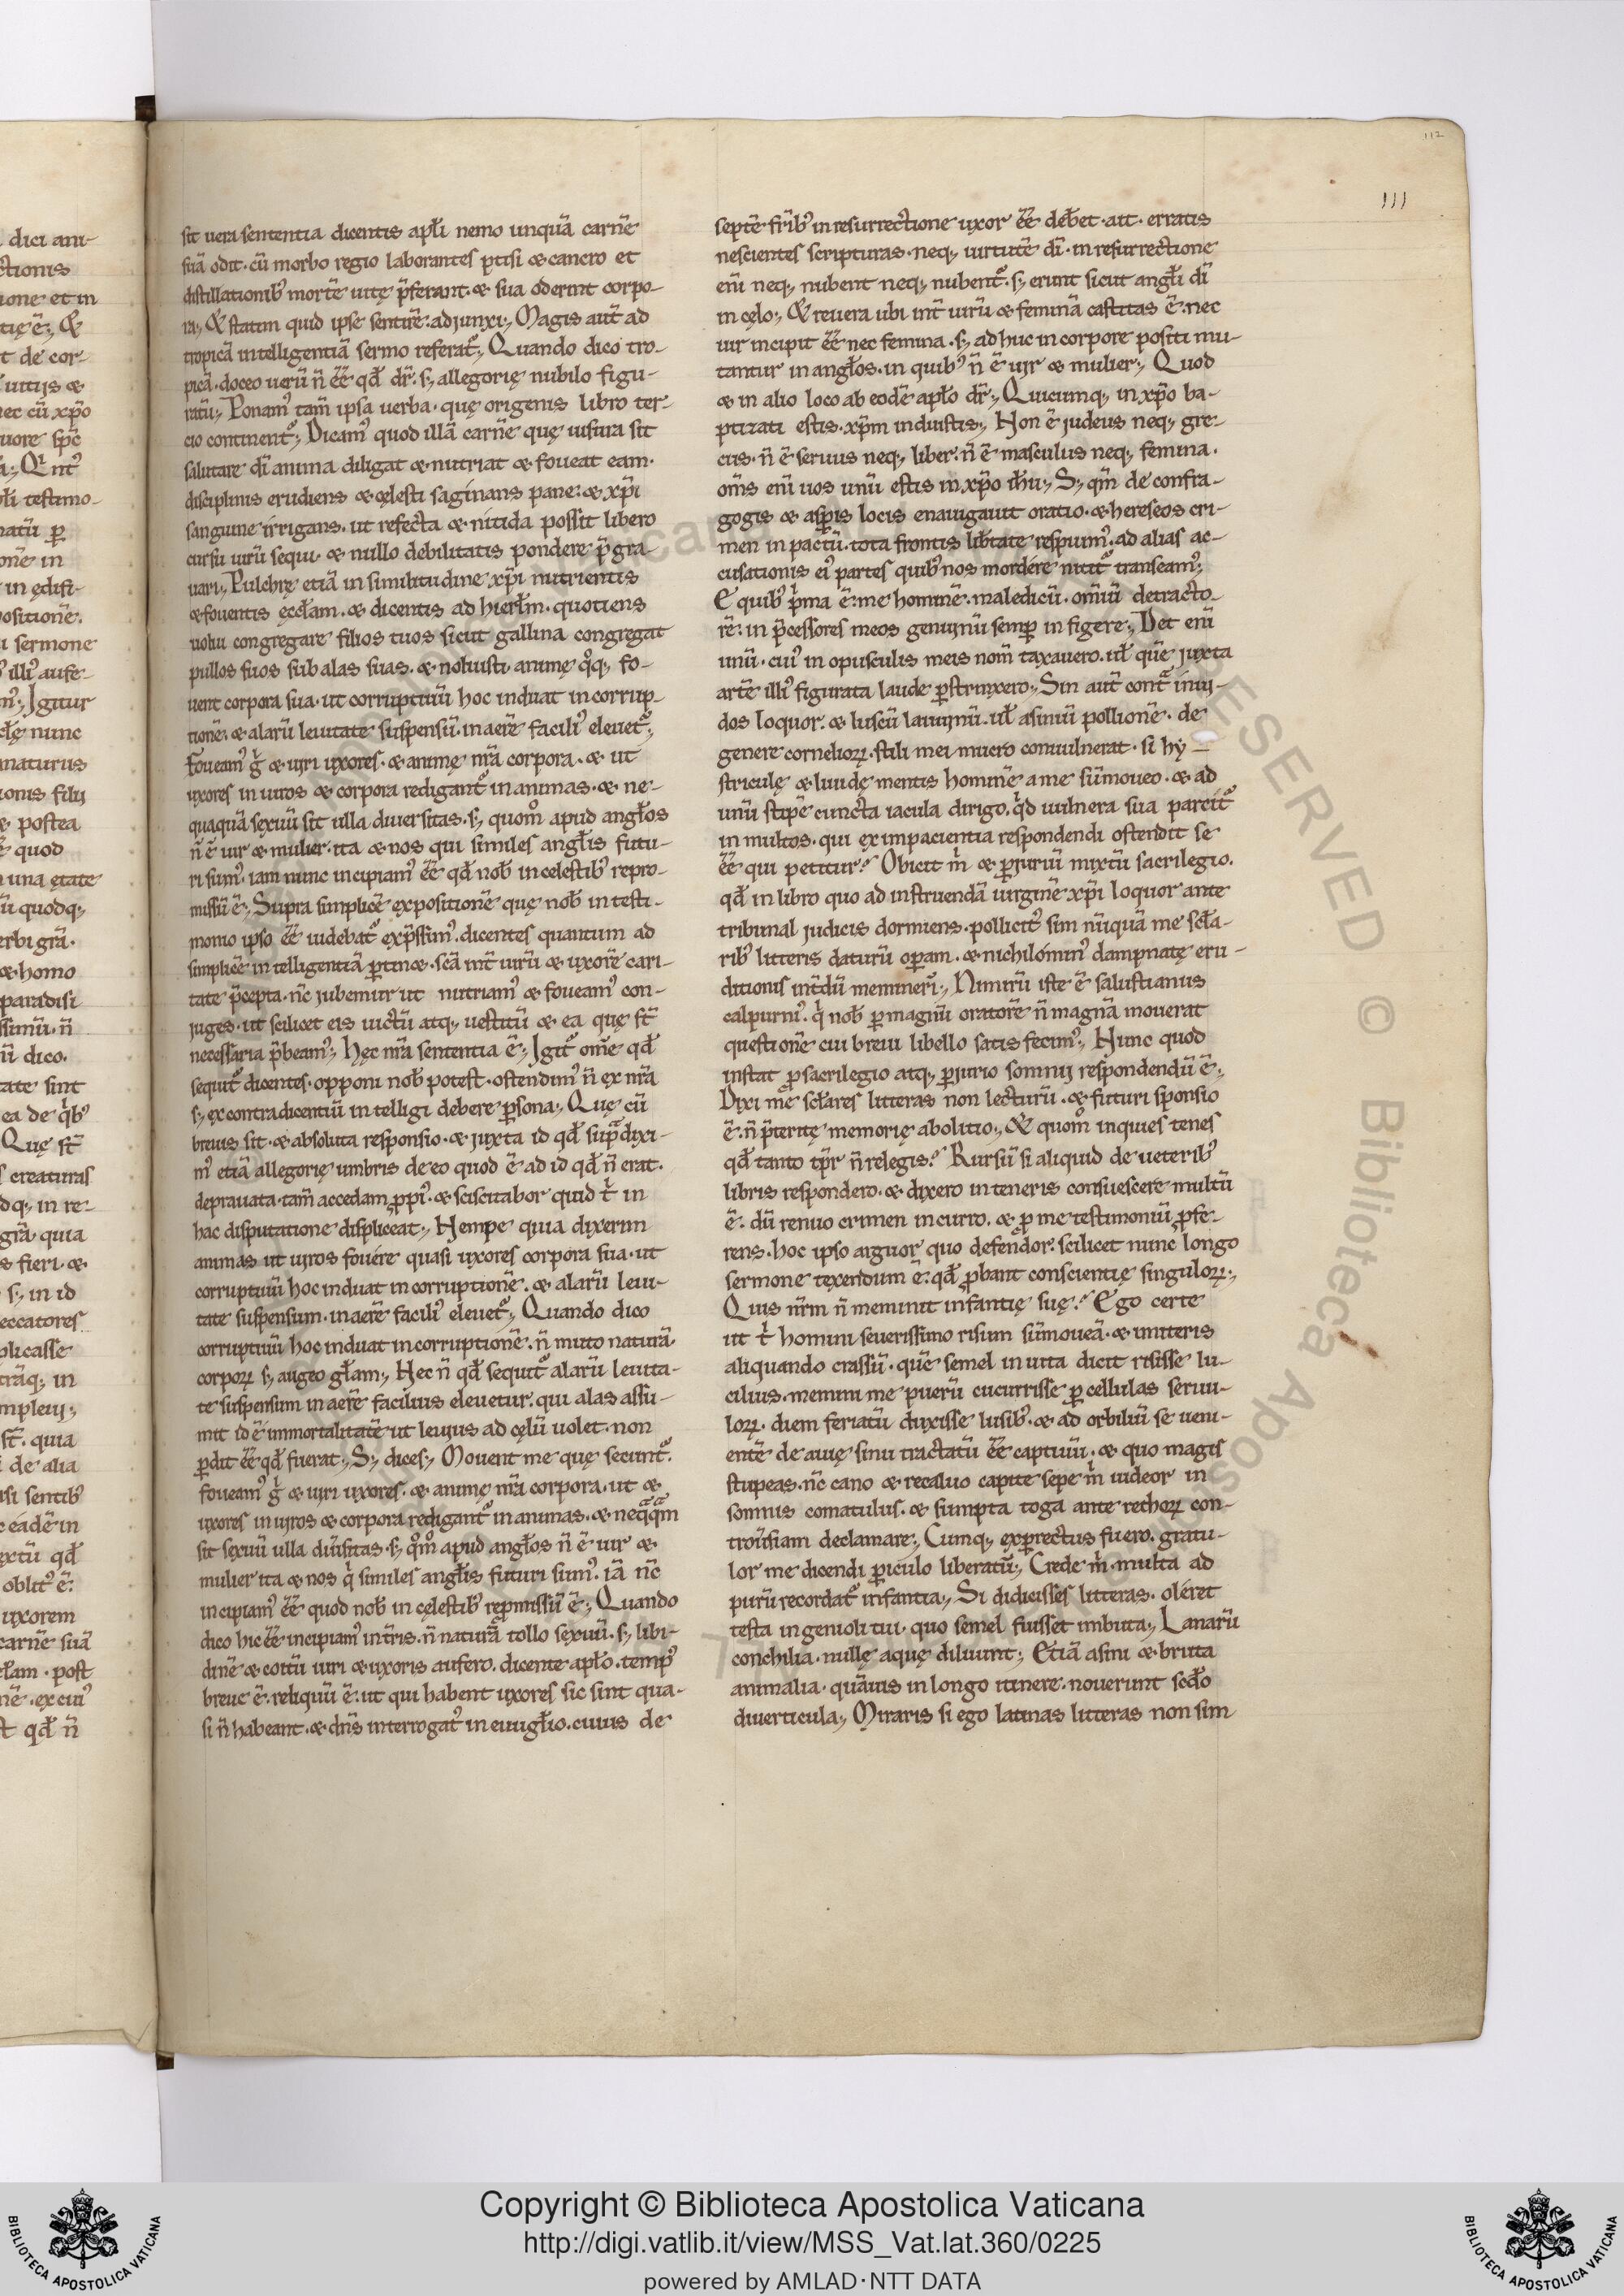 112
111
sit uera sententia dicentis apl̄i nemo unquā carnē
suā odit · cū morbo regio laborantes ptisi & cancro et
distillationib᷒ mortē uitę p̄ferant · & sua oderint corpo-
ra ; & statim quid ipse sentirē · adjunxi ; Magis aut̄ ad
tropicā intelligentiā sermo referat᷒ ; Quando dico tro-
picā · doceo uerū n̄ ēē qd̄ dr̄ · s; allegorię nubilo figu-
ratū ; Ponam᷒ tam̄ ipsa uerba · quę origenis libro ter-
cio continent᷒ ; Dicam᷒ quod illā carnē quę uisura sit
salutare dī anima diligat & nutriat & foueat eam ·
disciplinis erudiens & cęlesti saginans pane : & xp̄i
sanguine irrigans · ut refecta & nitida possit libero
cursu uirū sequi · & nullo debilitatis pondere p̄gra-
uari ; Pulchrę etiā in similitudine xp̄i nutrientis
& fouentis ęccl̄am · & dicentis ad hierl̄m · quotiens
uolui congregare filios tuos sicut gallina congregat
pullos suos sub alas suas · & noluisti animę q̊q; fo-
uent corpora sua · ut corruptiuū hoc induat incorrup-
tionē · & alarū leuitate suspensū · in aerē facili᷒ eleuet᷒ ;
foueam᷒ g̊ & uiri uxores · & animę nr̄a corpora · & ut
uxores in uiros & corpora redigant᷒ in animas · & ne-
quaquā sęxuū sit ulla diuersitas · s; quom̊ apud angl̄os
n̄ ē uir & mulier · ita & nos qui similes angl̄is futu-
ri sum᷒ · iam nunc incipiam᷒ ēē qd̄ nob̄ in celestib᷒ repro-
missū ē ; Supra simplicē expositionē quę nob̄ in testi-
monio ipso ēē uidebat᷒ exp̄ssim᷒ · dicentes quantum ad
simplicē intelligentiā ptin& · scā int̄ uirū & uxorē cari-
tate p̄cepta · nc̄ jubemur ut nutriam᷒ & foueam᷒ con-
juges · ut scilicet eis uictū atq; uestitū & ea quę st̄
necessaria p̄beam᷒ ; Hęc nr̄a sententia ē ; Igit᷒ om̄e qd̄
sequit᷒ dicentes · opponi nob̄ potest · ostendim᷒ n̄ ex nr̄a
s; ex contradicentiū intelligi debere psona ; Quę cū
breuis sit · & absoluta responsio · & juxta id qd̄ supra dixi-
m᷒ etiā allegorię umbris de eo quod ē ad id qd̄ n̄ erat ·
deprauata · tam̄ accedam ppi᷒ · & sciscitabor quid t̄ in
hac disputatione displiceat ; Nempe quia dixerim
animas ut uiros fouére quasi uxores corpora sua · ut
corruptiuū hoc induat incorruptionē · & alarū leui-
tate suspensum · in aerē facili᷒ eleuet᷒ ; Quando dico
corruptiuū hoc induat incorruptionē · n̄ muto naturā ·
corporꝝ s; augeo gl̄am ; Hec n̄ qd̄ sequit᷒ alarū leuita-
te suspensum in aerē facilius eleuetur · qui alas assu-
mit id ē immortalitatē ut leuius ad cęlū uolet · non
pdit ēē qd̄ fuerat ; S; dices ; Mouent me quę secunt᷒ ·
foueam᷒ g̊ & uiri uxores · & animę nr̄a corpora · ut &
uxores in uiros & corpora redigant᷒ in animas · & neqq̄m
sit sęxuū ulla diūsitas · s; q̊m̊ apud angl̄os n̄ ē uir &
mulier ita & nos q̊ similes angl̄is futuri sum᷒ · iā nc̄
incipiam᷒ ēē quod nob̄ in cęlestib᷒ repmissū ē ; Quando
dico hic ēē incipiam᷒ in tr̄is · n̄ naturā tollo sęxuū · s; libi-
dinē & coitū uiri & uxoris aufero · dicente apl̄o · temp᷒
breue ē · reliquū ē · ut qui habent uxores sic sint qua-
si n̄ habeant · & dn̄s interrogat᷒ in euugl̄io · cuius de
septē fr̄ib᷒ in resurrectione uxor ēē deb̄et · ait · erratis
nescientes scripturas · neq; uirtutē dī · in resurrectione
enī neq; nubent neq; nubent᷒ · s; erunt sicut angl̄i dī
in cęlo ; & reuera ubi int̄ uirū & feminā castitas ē · nec
uir incipit ēē nec femina · s; ad huc in corpore positi mu-
tantur in angl̄os · in quib᷒ n̄ ē uir & mulier ; Quod
& in alio loco ab eodē apl̄o dr̄ ; Quicumq; in xp̄o ba-
ptizati estis · xp̄m induistis ; Non ē judeus neq; gre-
cus · n̄ ē seruus neq; liber · n̄ ē masculus neq; femina ·
om̄s enī uos unū estis in xp̄o ih̄u ; S; qm̄ de confra-
gogis & aspis locis enauigauit oratio · & hereseos cri-
men in pactū · tota frontis lib̄tate respuim᷒ · ad alias ac-
cusationis ei᷒ partes quib᷒ nos mordére nitit᷒ transeam᷒ ;
E quib᷒ p̊ma ē · me hominē · maledicū · omīū detracto-
rē · in p̄cessores meos genuinū semp in figere ; Det enī
unū · cui᷒ in opusculis meis nom̄ taxauero · ul̄ quē juxta
artē illi᷒ figurata laude pstrinxero ; Sin aut̄ cont̄ inui-
dos loquor · & luscū lauiniū · ul̄ asiniū pollionē · de
genere corneliorꝝ · stili mei mucro conuulnerat · si hy-
striculę & liuidę mentis hominē a me sūmoueo · & ad
unū stipē cuncta iacula dirigo · q̊d uulnera sua parcit᷒
in multos · qui ex impacientia respondendi ostendit se
ēē qui petitur ? Obicit m̊ & pjuriū mixtū sacrilegio ·
qd̄ in libro quo ad instruendā uirginē xp̄i loquor ante
tribunal judicis dormiens · pollicit᷒ sim nūquā me scl̄a-
rib᷒ litteris daturū opam · & nichilomin᷒ dampnatę eru-
ditionis int̄dū meminerī ; Nimirū iste ē salustianus
calpurni᷒ · q̊ nob̄ p magnū oratorē n̄ magnā mouerat
questionē cui breui libello satis fecim᷒ ; Nunc quod
instat p sacrilegio atq; pjurio somnij respondendū ē ;
Dixi me scl̄ares litteras non lecturū · & futuri sponsio
ē · n̄ p̄teritę memorię abolitio ; & quom̊ inquies tenes
qd̄ tanto tp̄r n̄ relegis ? Rursū si aliquid de ueterib᷒
libris respondero · & dixero in teneris consuescere multū
ē · dū renuo crimen incurro · & p me testimoniū pfe-
rens · hoc ipso arguor quo defendor · scilicet nunc longo
sermone texendum ē · qd̄ pbant conscientię singulorꝝ ;
Quis nr̄m n̄ meminit infantię suę ? Ego certe
ut t̊ homini seuerissimo risum sūmoueā · & imiteris
aliquando crassū · quē semel in uita dicit risisse lu-
cilius · memini me puerū cucurrisse p cellulas seruu-
lorꝝ · diem feriatū duxisse lusib᷒ · & ad orbiliū se ueni-
entē de auię sinu tractatū ēē captiuū · & quo magis
stupeas · nc̄ cano & recaluo capite sepe m̊ uideor in
somnis comatulus · & sumpta toga ante rethorꝝ con-
trou̅siam declamare ; Cumq; expectus fuero · gratu-
lor me dicendi piculo liberatū ; Crede m̊ · multa ad
purū recordat᷒ infantia ; Si didicisses litteras · oléret
testa ingenioli tui · quo semel fuisset imbuta ; Lanarū
conchilia · nullę aquę diluunt ; Etiā asini & bruta
animalia · quāuis in longo itinere · nouerunt scd̄o
diuerticula ; Miraris si ego latinas litteras non sim
Copyright © Biblioteca Apostolica Vaticana
http://digi.vatlib.it/view/MSS_Vat.lat.360/0225
powered by AMLAD·NTT DATA
BIBLIOTECA APOSTOLICA VATICANA
BIBLIOTECA APOSTOLICA VATICANA